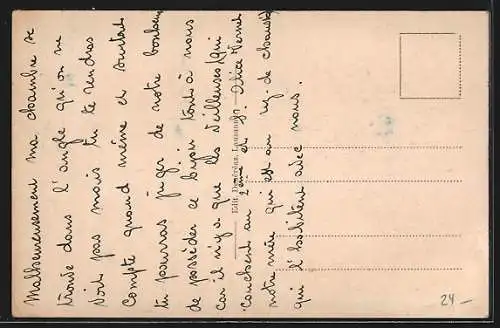 Malheureusement ma chambre se
trouve dans l'angle qu'on ne
voit pas mais tu te rendras
compte quand même et surtout
tu pourras juger de notre bonheur
de posséder ce bijou tout à nous
car il n'y a que les veilleuses (qui
couchent au 2ème et S. Alice Vernet
notre mère qui est au rez-de-chaussée)
qui l'habitent avec nous.
Edit. Deméréaz, Lausanne
24 -